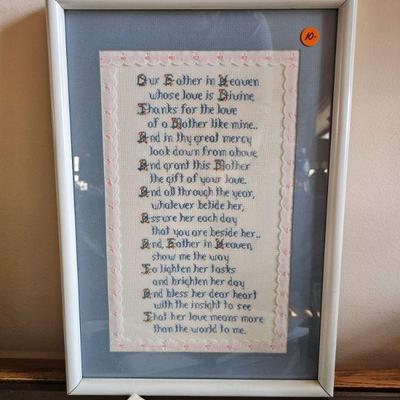 10-
Our Father in Heaven
whose love is Divine,
Thanks for the love
of a Mother like mine..
And in thy great mercy
look down from above,
And grant this Mother
the gift of your love.
And all through the year,
whatever betide her,
Assure her each day
that you are beside her..
And, Father in Heaven,
show me the way
To lighten her tasks
and brighten her day
And bless her dear heart
with the insight to see
That her love means more
than the world to me.